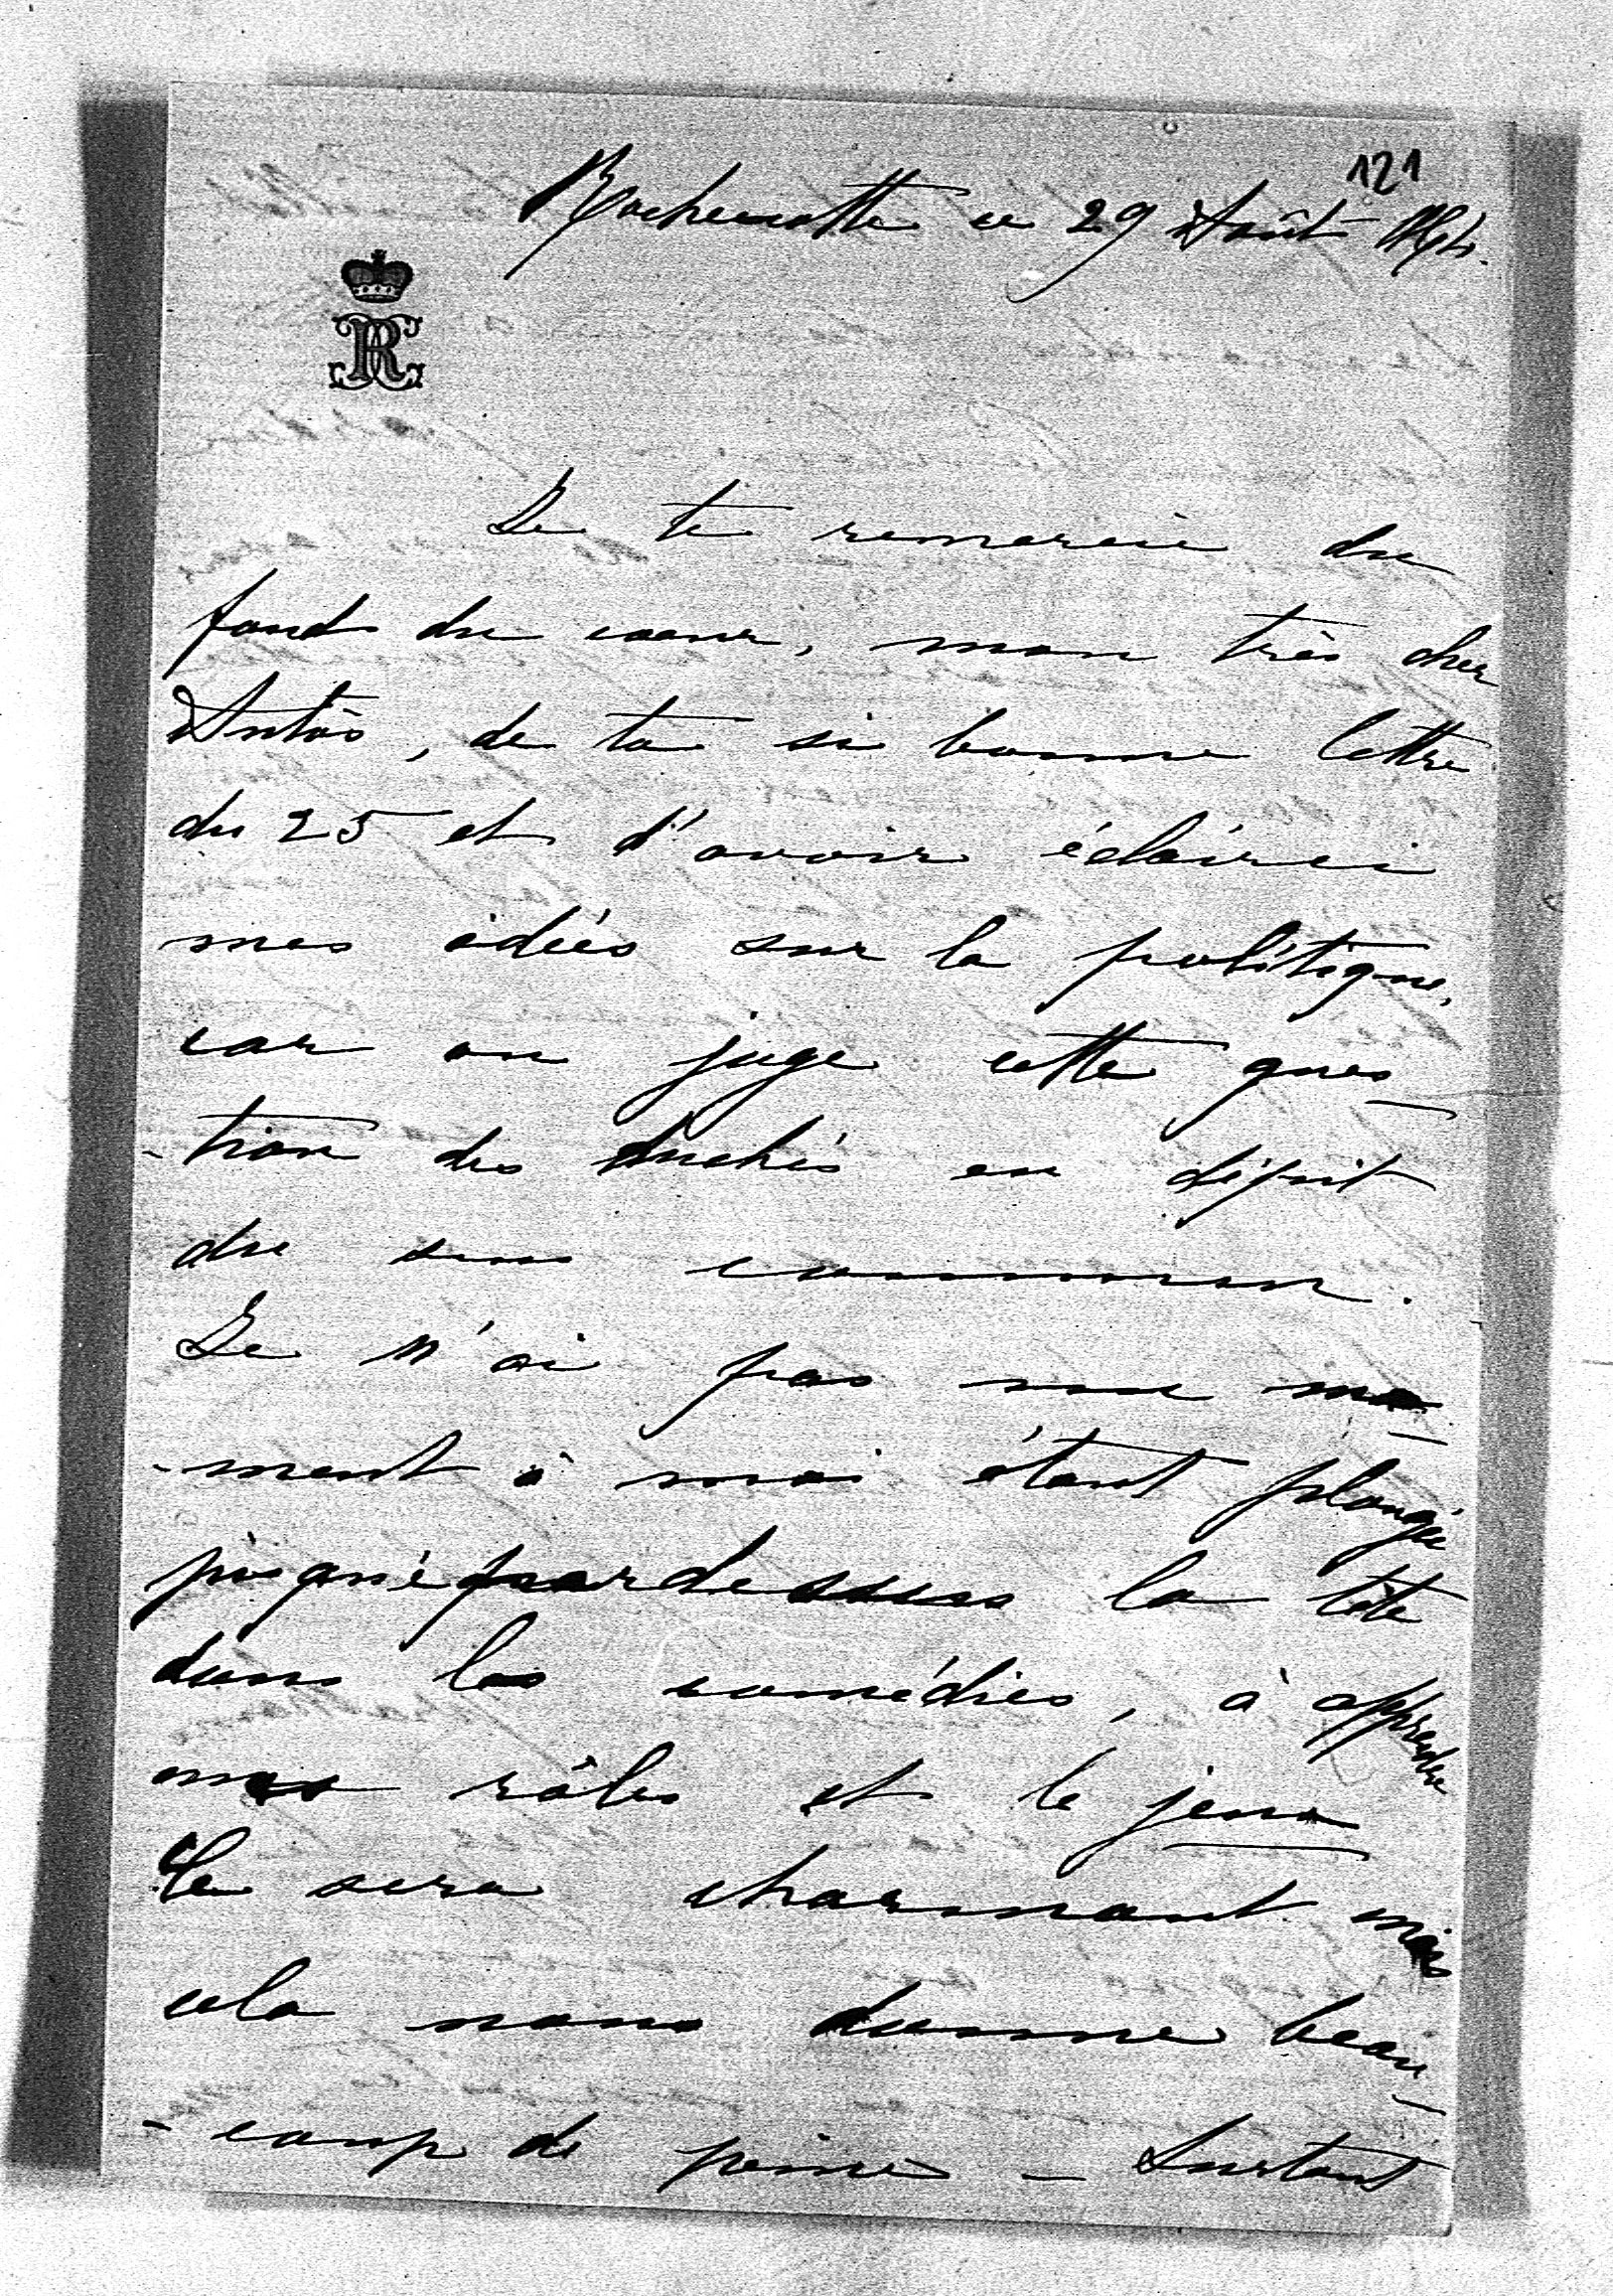 121
Rochecotte ce 29 Août
R
Je te remercie du
fond du coeur, mon très cher
Antôs, de ta si bonne lettre
du 25 et d'avoir éclairci
mes idées sur la politique,
car on juge cette ques
-tion des Duchés en dépit
du sens commun.
Je n'ai pas un mo-
-ment à moi étant plongée
jusque pardessus la tête
dans les comédies, à apprendre
mes rôles et le jeu
Ce sera charmant mais
cela nous donne beau-
-coup de peine – Surtout